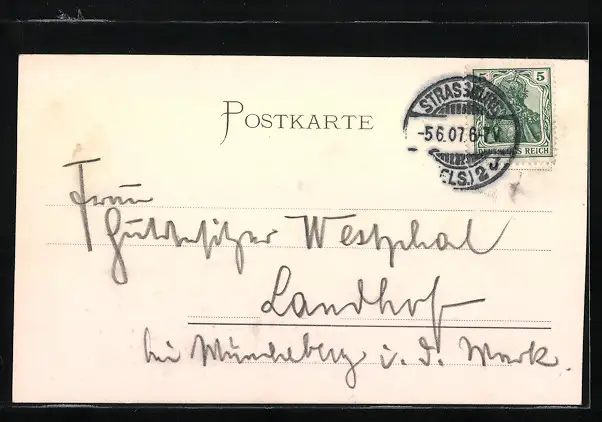 POSTKARTE
5 5
DEUTSCHES REICH
STRASSBURG
-5.6.07.6-7N
(ELS.) 2
Frau
Gutsbesitzer Westphal
Landhof
bei Müncheberg i. d. Mark.